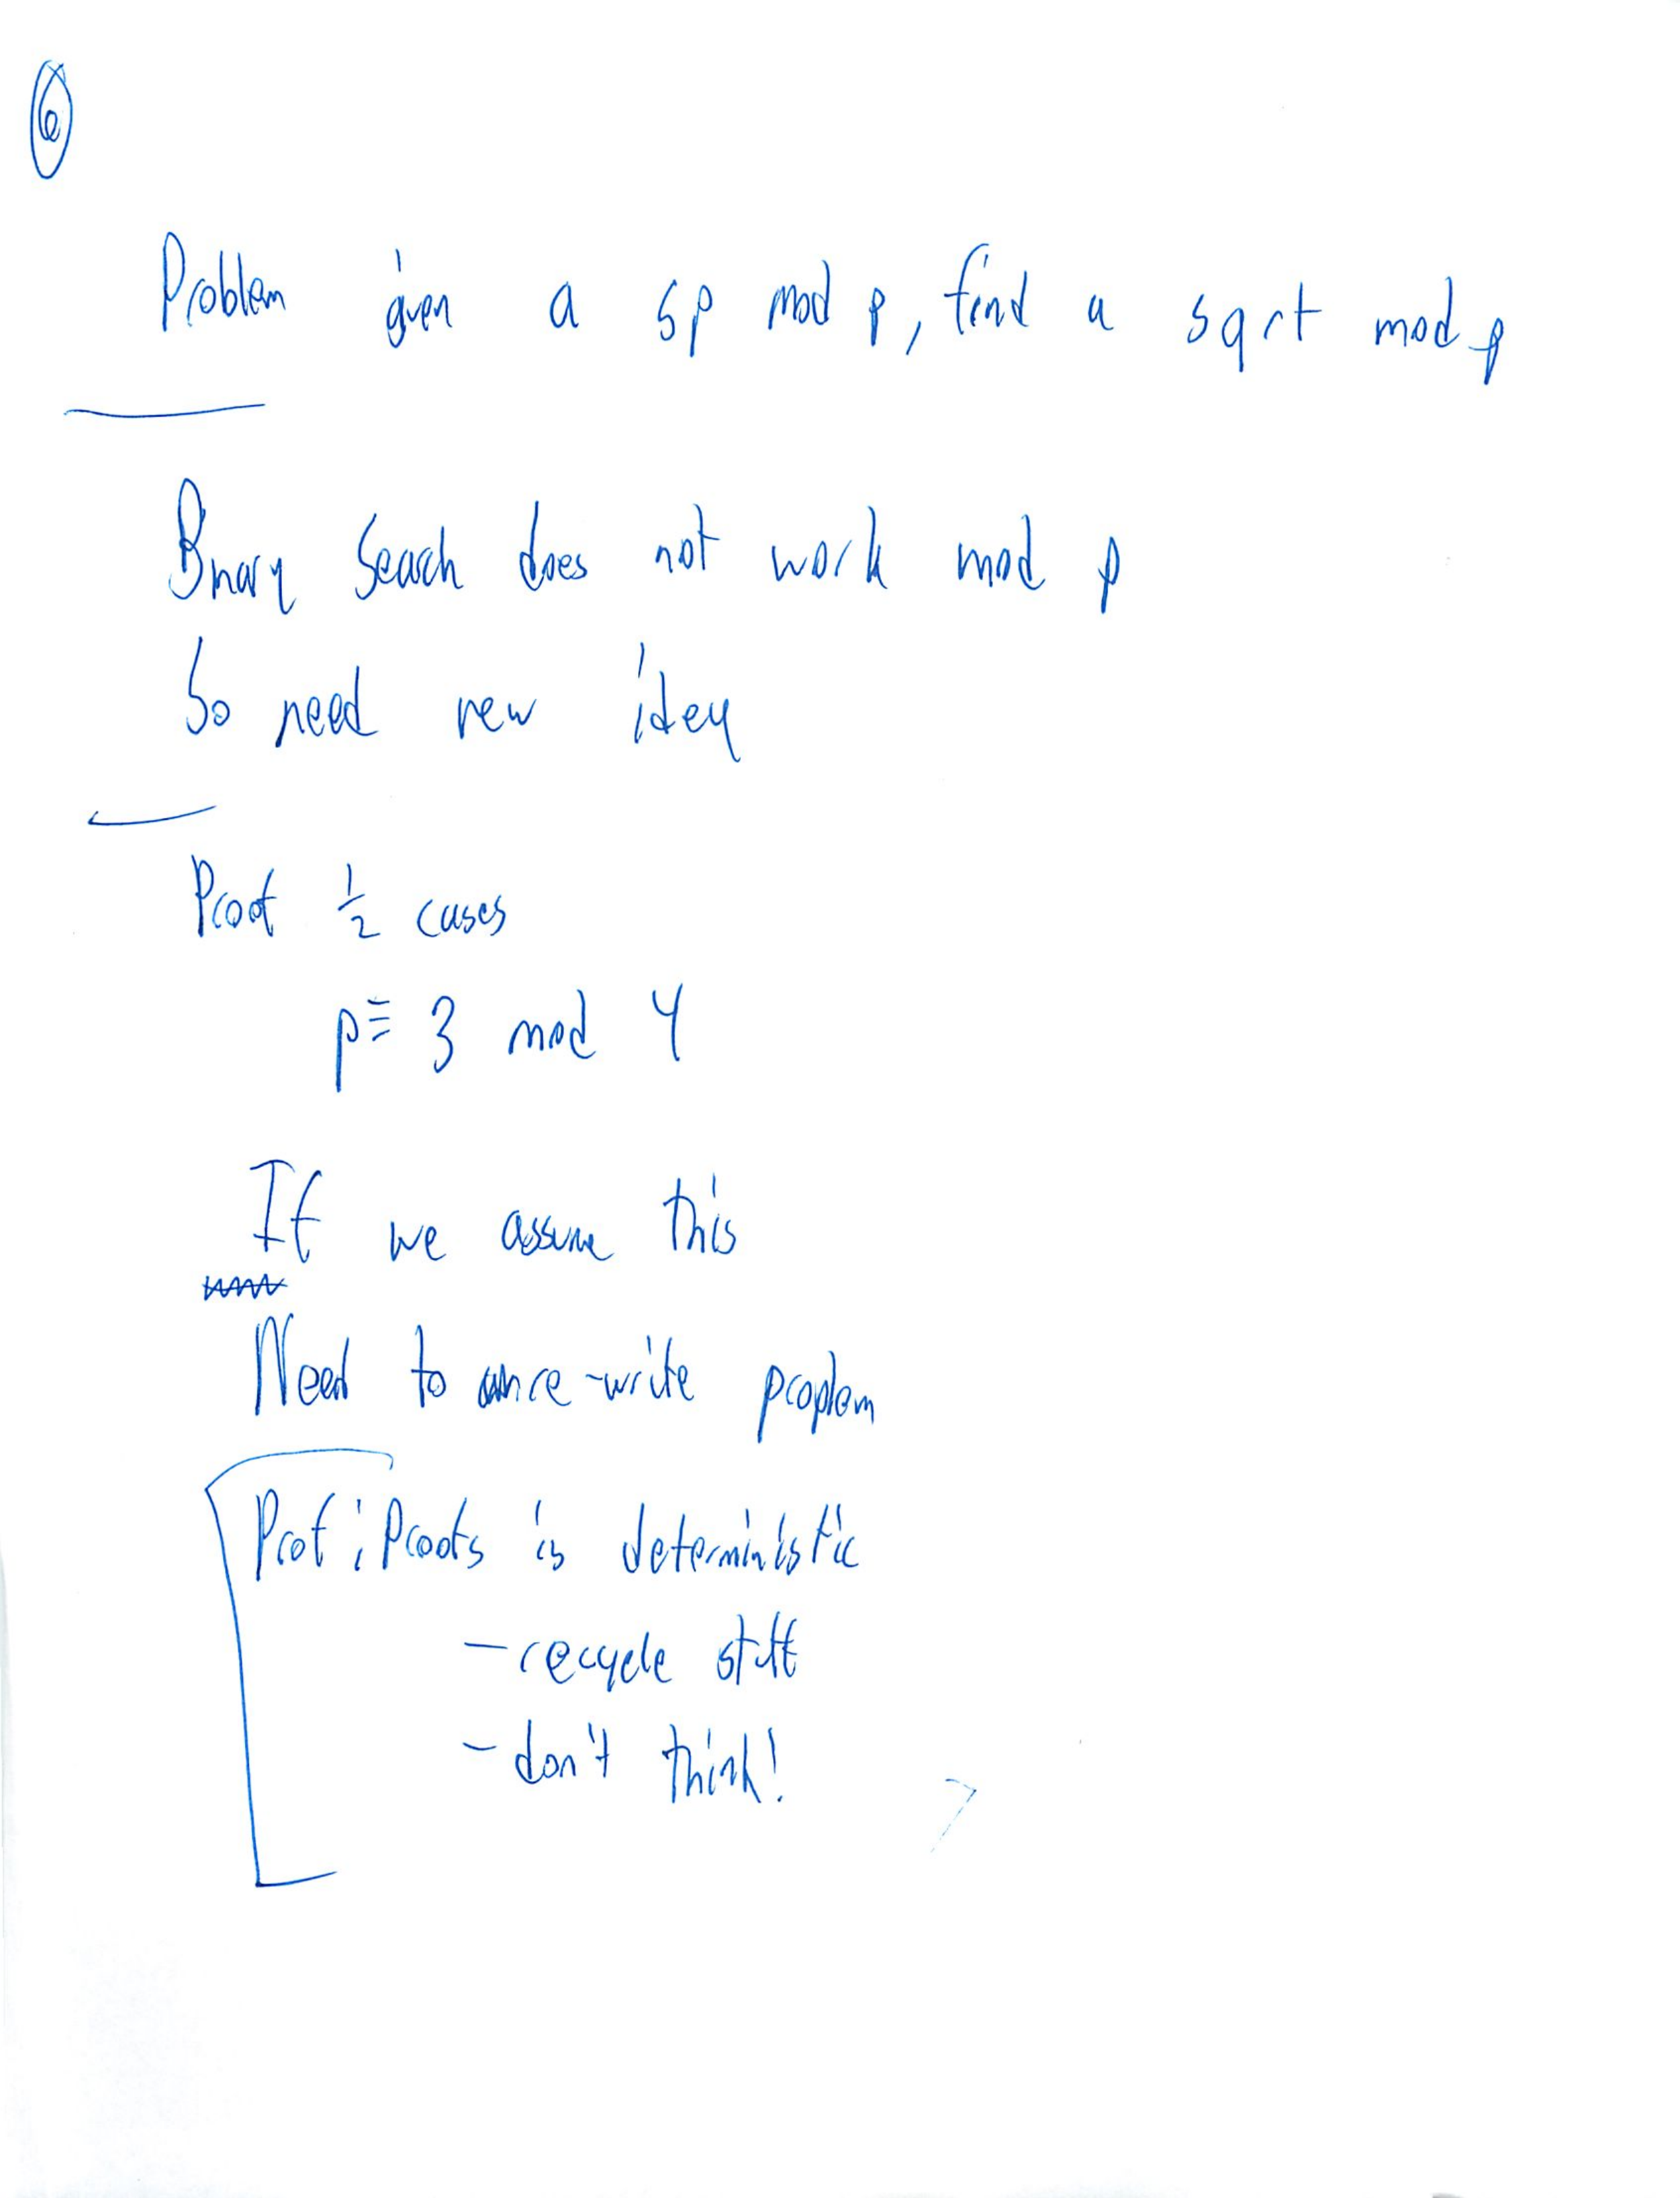 6
Problem given a sp mod p, find a sqrt mod p
Binary Search does not work mod p
So need new idea
Proof 1/2 cases
p ≡ 3 mod 4
If we assume this
Need to re-write proplem
Prof: Proofs is deterministic
- recycle stuff
- don't think!